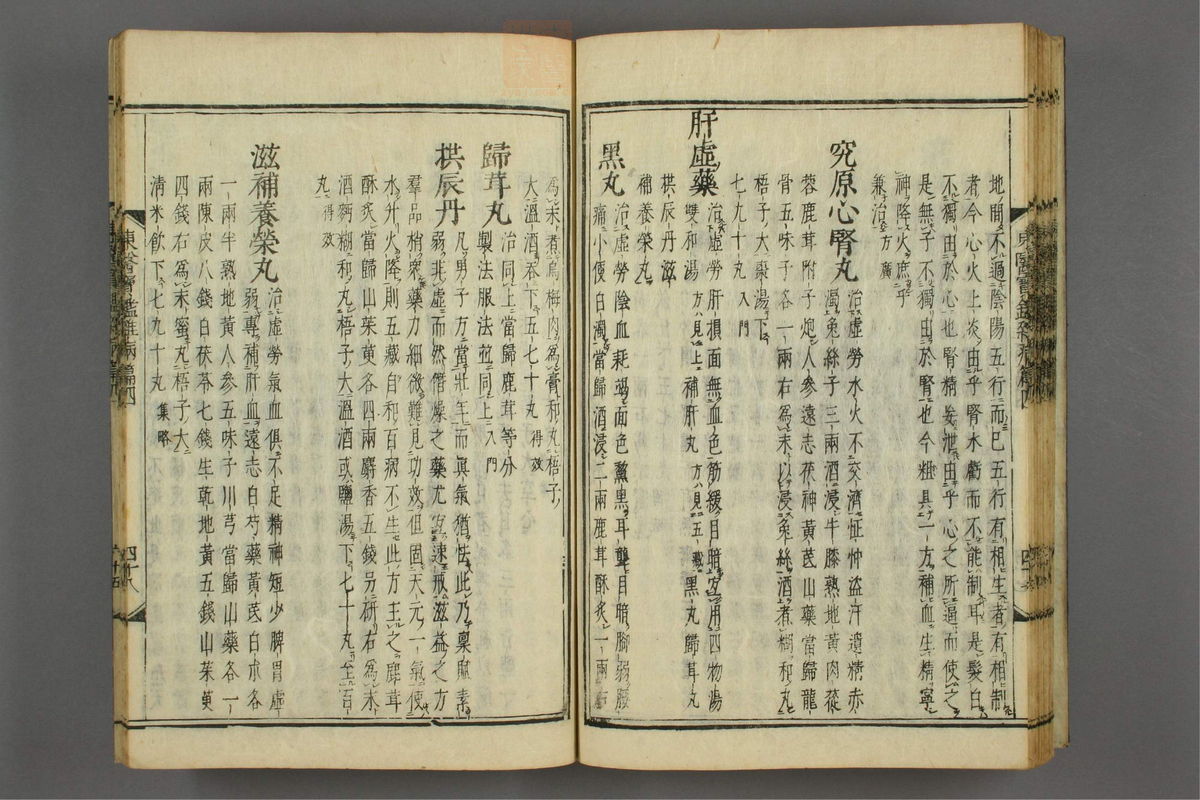 地間不過陰陽五行而已五行有相生者有相制
者今心火上炎由乎腎水虧而不能制耳是髮白
不獨由於心也腎精妄泄由乎心之所逼而使之
是無子不獨由於腎也今粗具一方補血生精寧
神降火庶乎
兼治 方廣
究原心腎丸 治虛勞水火不交濟怔忡盜汗遺精赤
濁兔絲子三兩酒浸牛膝熟地黃肉蓯
蓉鹿茸附子炮人參遠志茯神黃芪山藥當歸龍
骨五味子各一兩右爲末以浸兔絲酒煮糊和丸
梧子大棗湯下
七九十丸 入門
肝虛藥 治虛勞肝損面無血色筋緩目暗宜用四物湯
雙和湯 方見上 補肝丸 方見五藏 黑丸歸茸丸
拱辰丹滋
補養榮丸
黑丸 治虛勞陰血耗竭面色黧黑耳聾目暗脚弱腰
痛小便白濁當歸酒浸二兩鹿茸酥炙一兩右
爲末煮烏梅肉爲膏和丸梧子
大溫酒呑下五七十丸 得效
歸茸丸 治同上當歸鹿茸等分
製法服法並同上 入門
拱辰丹 凡男子方當壯年而眞氣猶怯此乃稟賦素
弱非虛而然僭燥之藥尤宜速戒滋益之方
羣品稍衆藥力細微難見功效但固天元一氣使
水升火降則五藏自和百病不生此方主之鹿茸
酥炙當歸山茱萸各四兩麝香五錢另硏右爲末
酒麪糊和丸梧子大溫酒或鹽湯下七十丸至百
丸 得效
滋補養榮丸 治虛勞氣血俱不足精神短少脾胃虛
弱專補肝血遠志白芍藥黃芪白朮各
一兩半熟地黃人參五味子川芎當歸山藥各一
兩陳皮八錢白茯苓七錢生乾地黃五錢山茱萸
四錢右爲末蜜丸梧子大
淸米飮下七九十丸 集略
東醫寶鑑雜病篇四
四十八